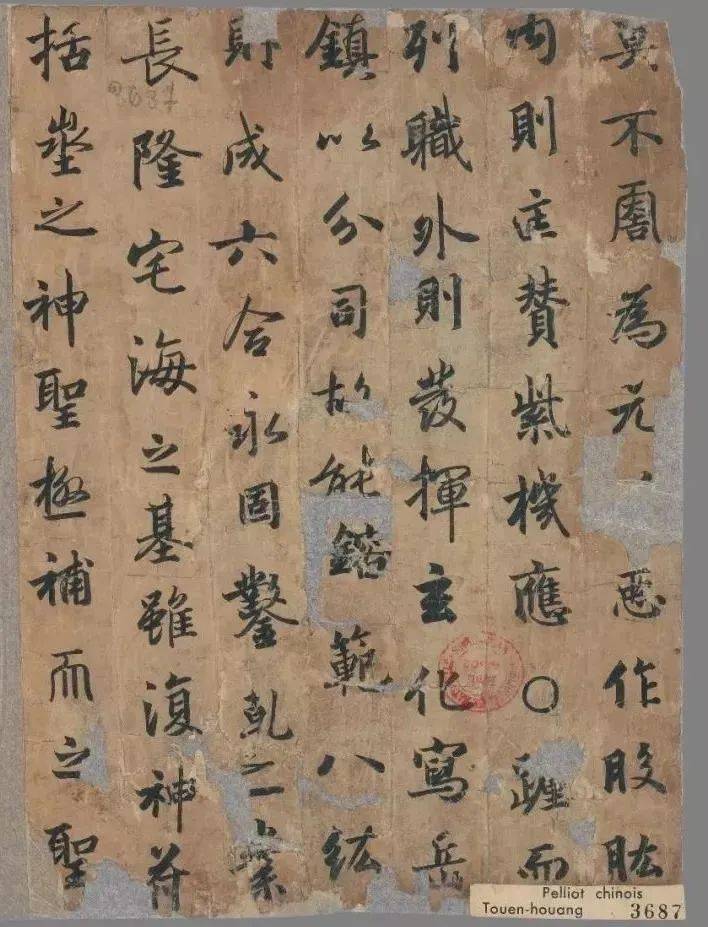 莫不為元、悉作股肱
內則匡贊紫機應〇躔而
列職外則發揮玄化寫岳
鎮以分司故能鎔範八紘
財成六合永固鑿乾之業
長隆宅海之基雖復神苻
括之神聖極補而之聖
Pelliot chinois
Touen-houang 3687